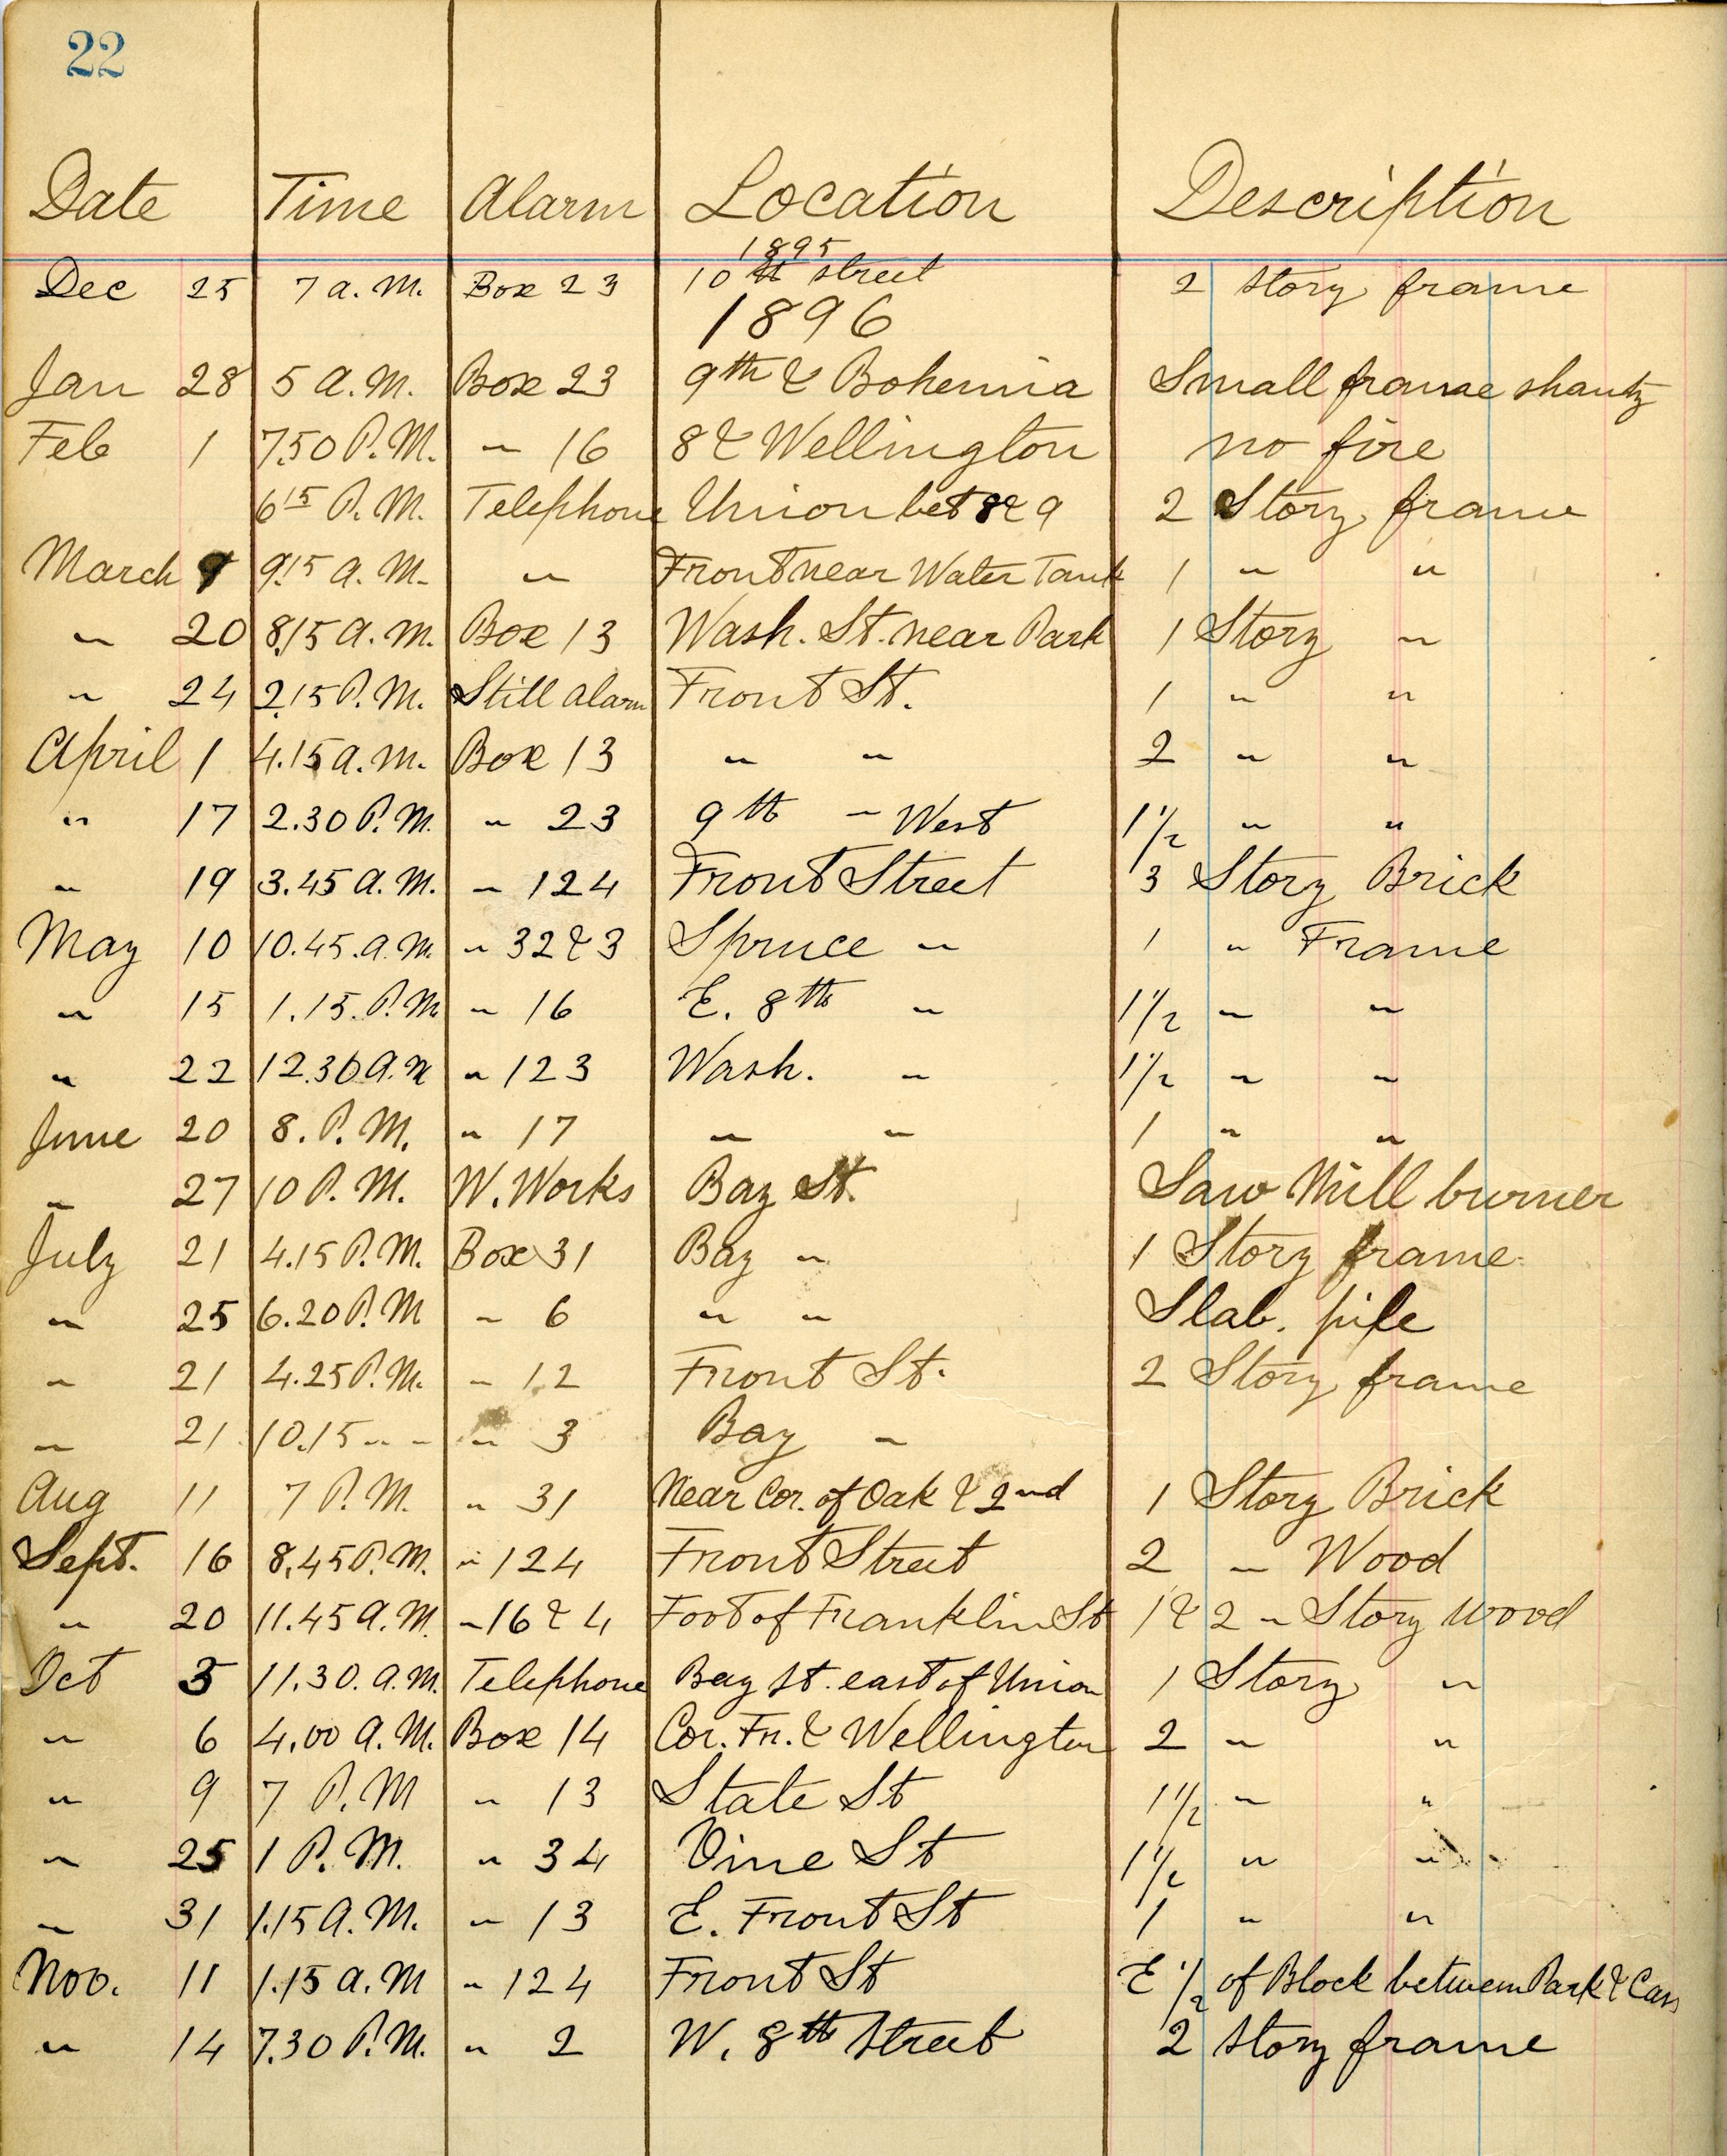 22
Date Time Alarm Location Description
1895
Dec 25 7 a.M. Box 23 10th street 2 story frame
1896
Jan 28 5 A.M. Box 23 9th & Bohemia Small framae shanty
Feb 1 7.50 P.M. " 16 8 & Wellington no fire
6 15 P.M. Telephone Union bet 8 & 9 2 Story frame
March 9 9.15 A.M. " Front near Water Tank 1 " "
" 20 8.15 A.M. Box 13 Wash. St. near Park 1 Story "
" 24 2.15 P.M. Still alarm Front St. 1 " "
April 1 4.15 a.m. Box 13 " " 2 " "
" 17 2.30 P.M. " 23 9th " West 1 1/2 " "
" 19 3.45 A.M. " 124 Front Street 3 Story Brick
May 10 10.45.A.M. " 32 & 3 Spruce " 1 " Frame
" 15 1.15.P.M. " 16 E. 8th " 1 1/2 " "
" 22 12.30 A.M " 123 Wash. " 1 1/2 " "
June 20 8. P.M. " 17 " " 1 " "
" 27 10 P.M. W. Works Bay St. Saw Mill burner
July 21 4.15 P.M. Box 31 Bay " 1 Story frame
" 25 6.20 P.M " 6 " " Slab. pile
" 21 4.25 P.M. " 12 Front St. 2 Story frame
" 21 10.15 " " " 3 Bay "
Aug 11 7 P.M. " 31 Near Cor. of Oak & 2nd 1 Story Brick
Sept. 16 8.45 P.M. " 124 Front Street 2 " Wood
" 20 11.45 A.M. " 16 & 4 Foot of Franklin St 1 & 2 " Story wood
Oct 5 11.30.A.M. Telephone Bay st. east of Union 1 Story "
" 6 4.00 A.M. Box 14 Cor. Fr. & Wellington 2 " "
" 9 7 P.M " 13 State St 1 1/2 " "
" 25 1 P.M. " 34 Vine St 1 1/2 " "
" 31 1.15 A.M. " 13 E. Front St 1 " "
Nov. 11 1.15 a.M " 124 Front St E 1/2 of Block between Park & Cass
" 14 7.30 P.M. " 2 W. 8th street 2 story frame